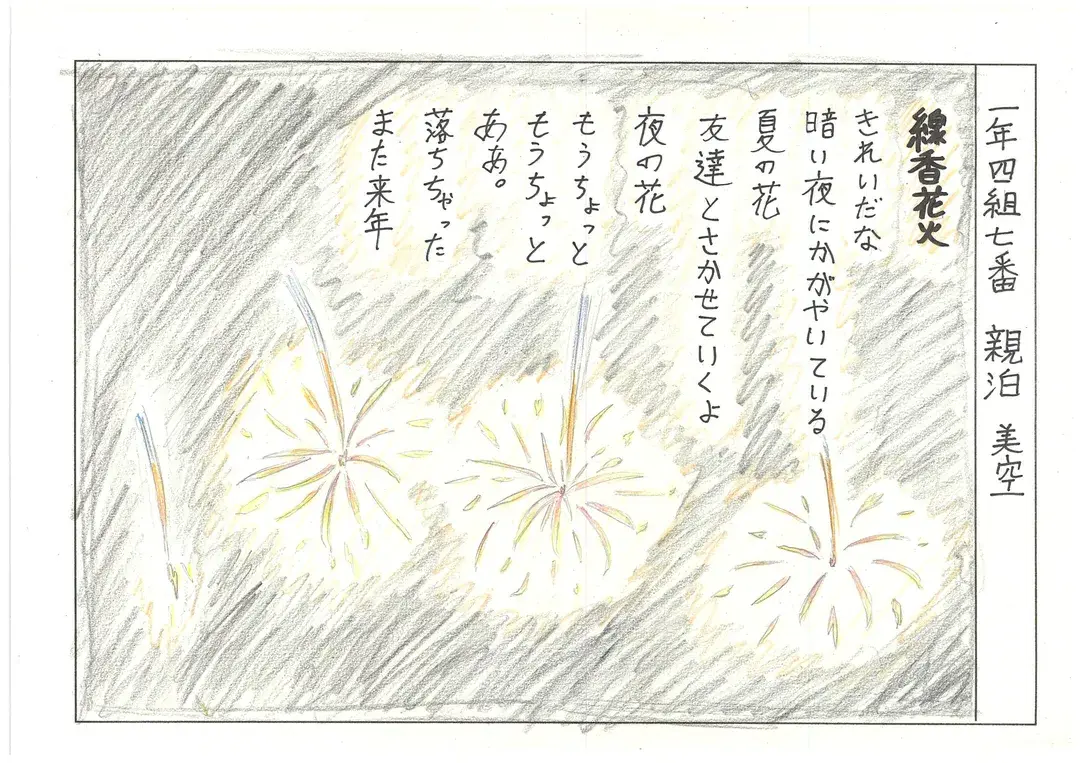 一年四組七番　親泊　美空
線香花火
きれいだな
暗い夜にかがやいている
夏の花
友達とさかせていくよ
夜の花
もうちょっと
もうちょっと
ああ。
落ちちゃった
また来年